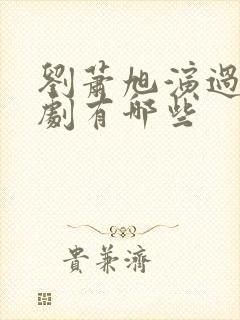 劉蕭旭演過
劇有哪些
貴兼濟